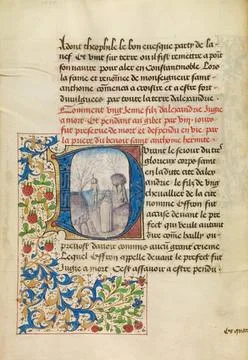 Adont theophile le bon euesque party de la
nef Et vint sur terre ou il fist remettre a poit
son nauire pour aler en constantinoble Lors
la fame et renommee de monseigneur saint
anthoine comenca a croistre et a estre fort
diuulguee par toute la terre dalexandre
Comment vng Jeune filz dalexandrie Jugie
a mort Et pendant au gibet par viij Jours
fut preserue de mort et deffendu en vie par
la priere du benoit saint anthoine hermite
Durant le seiour du tres
glorieux corps saint
en la ditte cite dalex
andrie le filz de vng
cheuallier de la cite
nomme Effron fut
accuse deuant le pre
fect qui
dire comme bailly ou
preuost dauoir commis aucun grant crime
Lequel Effron appelle deuant le prefect fut
Jugie a mort Cest assauoir a estre pendu